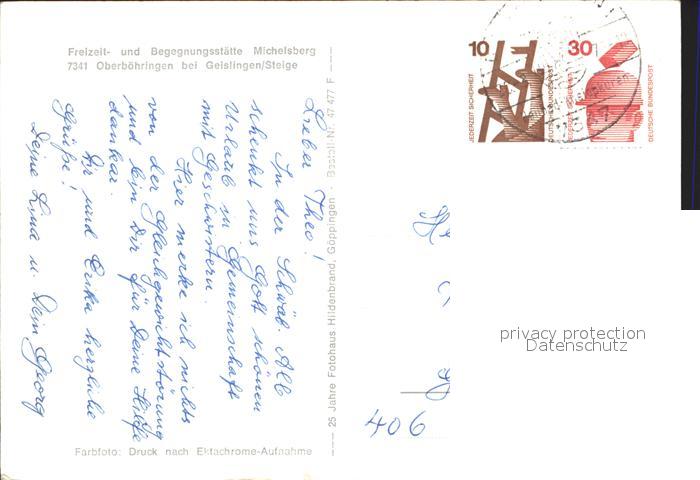 Freizeit- und Begegnungsstätte Michelsberg
7341 Oberböhringen bei Geislingen/Steige
Lieber Theo!
In der Schwäb. Alb
schenkt uns Gott schönen
Urlaub in Gemeinschaft
mit Geschwistern.
Hier merke ich nichts
von der Gleichgewichtstörung
und bin Dir für Deine Hilfe
dankar.
Dir und Erika herzliche
Grüße!
Deine Lina u. Dein Georg
Farbfoto: Druck nach Ektachrome-Aufnahme
25 Jahre Fotohaus Hildenbrand, Göppingen - Bestell-Nr. 47 477 F
10
JEDERZEIT SICHERHEIT
DEUTSCHE BUNDESPOST
30
JEDERZEIT SICHERHEIT
DEUTSCHE BUNDESPOST
He
406
privacy protection
Datenschutz